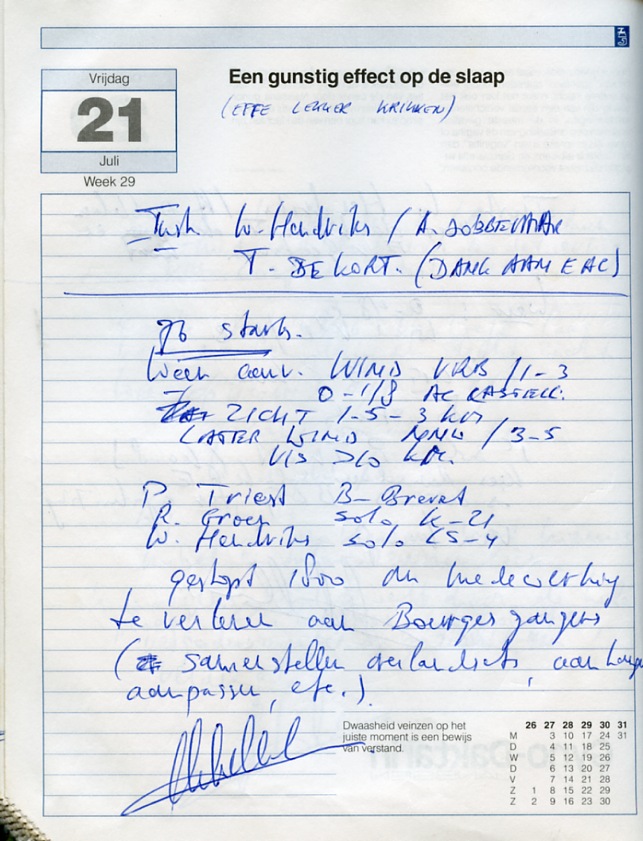 Vrijdag
21
Juli
Week 29
Een gunstig effect op de slaap
(EFFE LEKKER KRIKKEN)
W. Hendriks / A. DOBBELAAR
T. DE KORT. (DANK AAN EAC)
76 starts.
Weer aanv. WIND VRB / 1-3
0-1/8 AC CASTELL.
ZICHT 1.5-3 KM
LATER WIND NNW / 3-5
VIS >10 KM.
P. Triest B-Brevet
R. Groen solo K-21
W. Hendriks solo LS-4
gestopt 1800 om medewerking
te verlenen aan Bourges gangers
( samenstellen overlandsets, aanhanger
aanpassen, etc.).
Dwaasheid veinzen op het
juiste moment is een bewijs
van verstand.
26 27 28 29 30 31
M 3 10 17 24 31
D 4 11 18 25
W 5 12 19 26
D 6 13 20 27
V 7 14 21 28
Z 1 8 15 22 29
Z 2 9 16 23 30